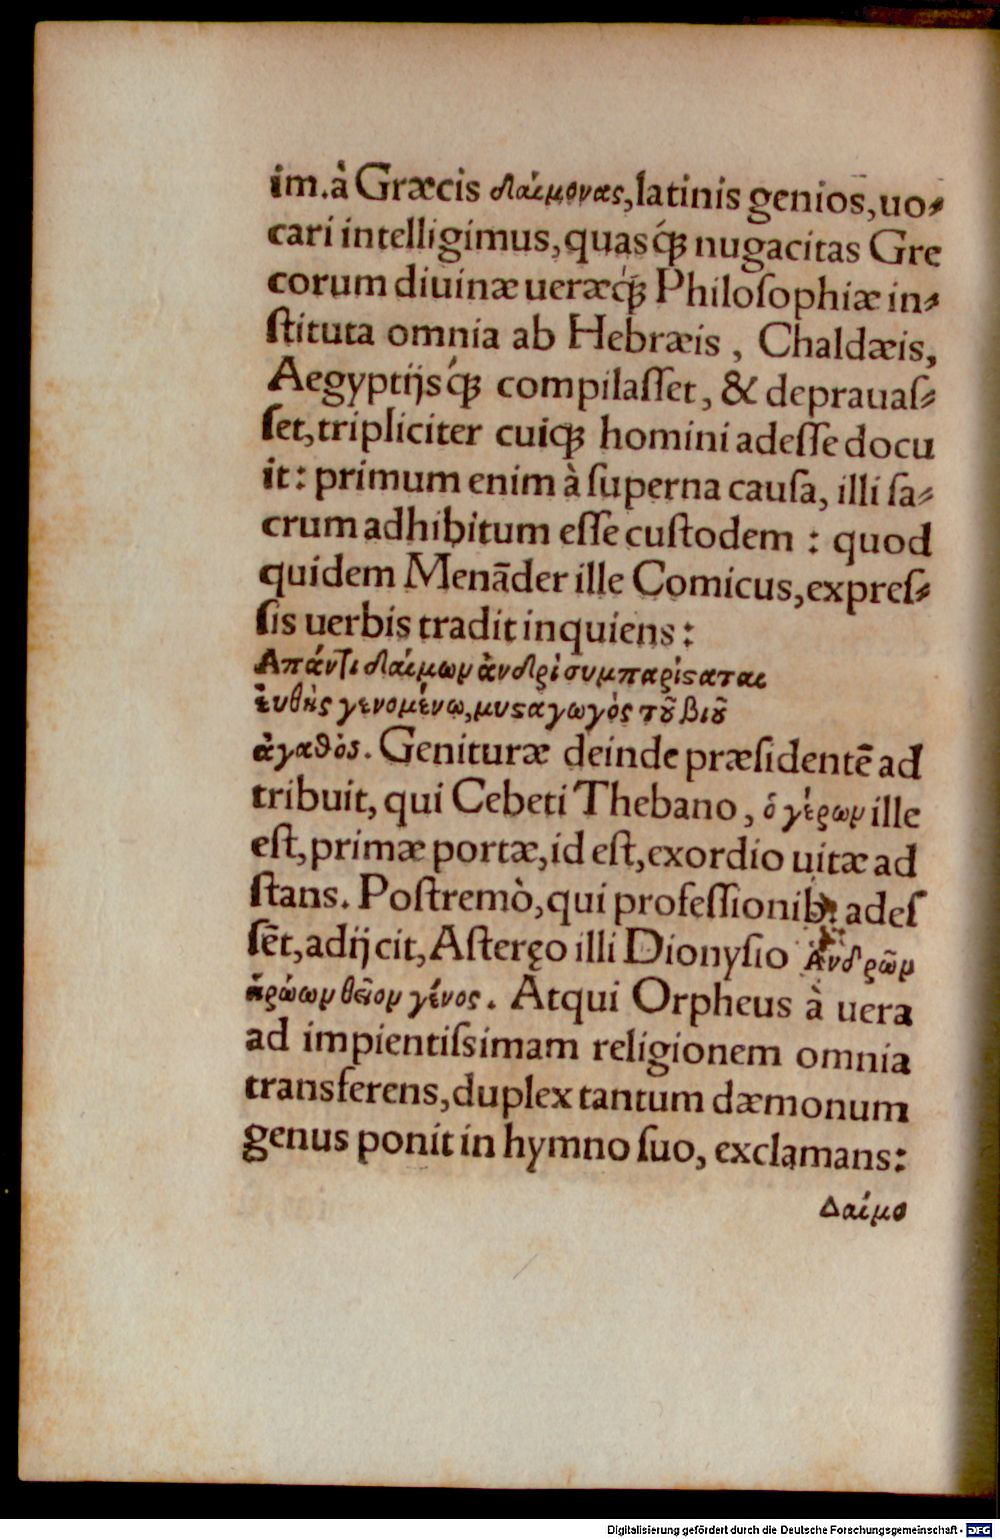 im.à Græcis δαίμονας,latinis genios,uo⸗
cari intelligimus,quasq́ꝫ nugacitas Gre
corum diuinæ ueræq́ꝫ Philoſophiæ in⸗
ſtituta omnia ab Hebræis , Chaldæis,
Aegyptijsq́ꝫ compilaſſet, & deprauaſ⸗
ſet,tripliciter cuiqꝫ homini adeſſe docu
it: primum enim à ſuperna cauſa, illi ſa⸗
crum adhibitum eſſe cuſtodem : quod
quidem Menāder ille Comicus,expreſ⸗
ſis uerbis tradit inquiens:
Απάντι δαίμων ἀνδρὶ συμπαρίϛαται
ἐυθὴς γενομένω,μυϛαγωγὸς τοῦ βιοῦ
ἀγαθὸς. Genituræ deinde præſidentē ad
tribuit, qui Cebeti Thebano, ὁ γέρων ille
eſt, primæ portæ,id eſt,exordio uitæ ad
ſtans. Poſtremò,qui profeſſionibꝰ adeſ
ſēt,adijcit,Aſteręo illi Dionyſio Ἀνδρῶν
ἡρώων θεῖον γένος. Atqui Orpheus à uera
ad impientiſsimam religionem omnia
transferens,duplex tantum dæmonum
genus ponit in hymno ſuo, exclamans:
Δαίμο
Digitalisierung gefördert durch die Deutsche Forschungsgemeinschaft - DFG